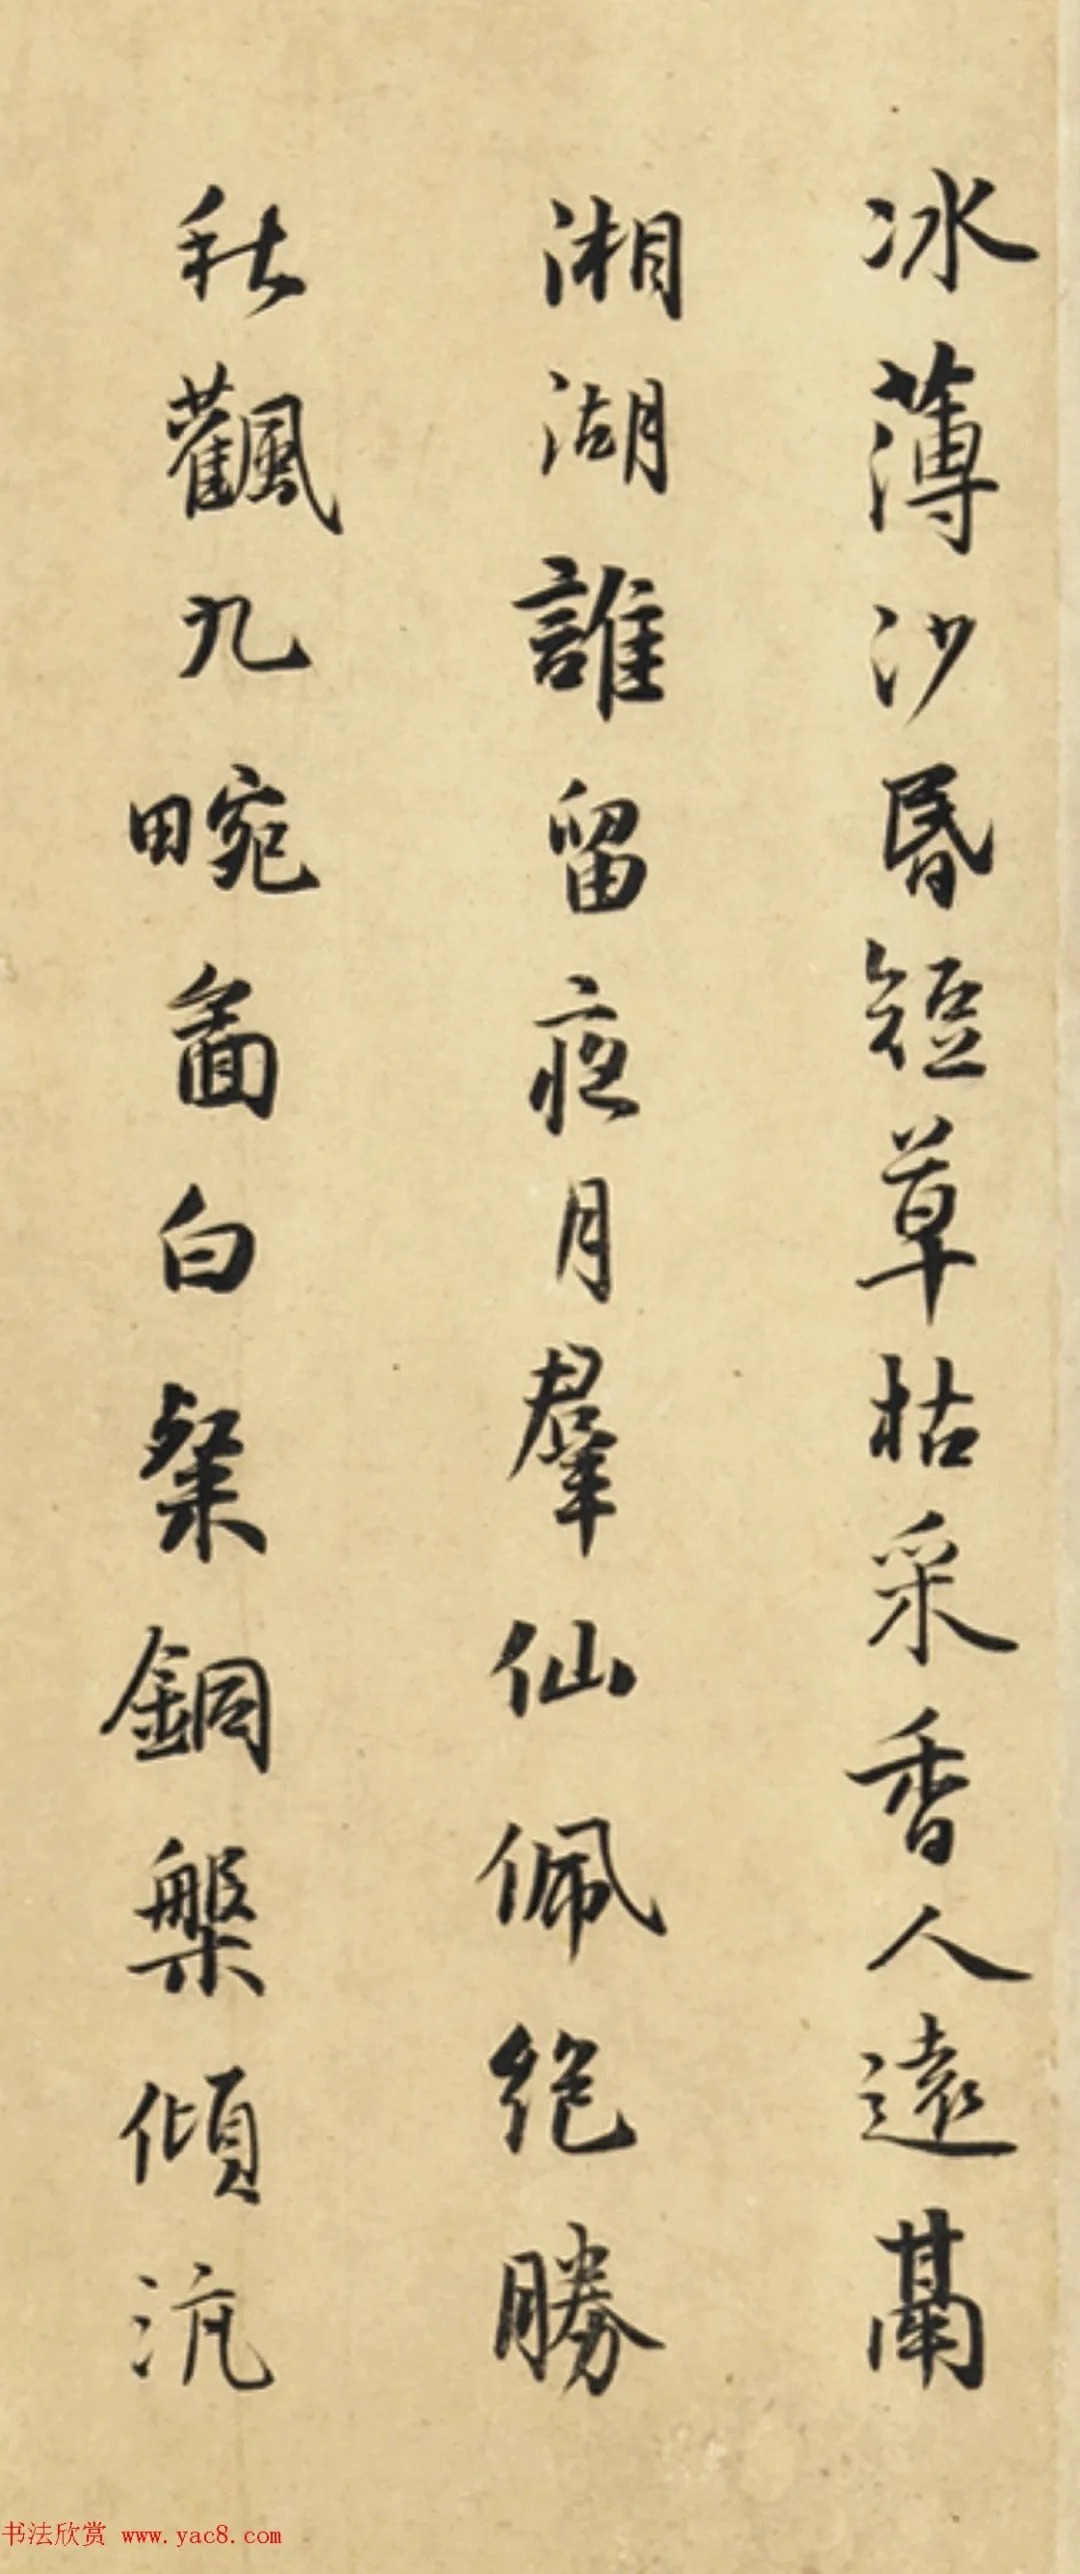 冰薄沙昬短草枯采香人遠鬲
湘湖誰留夜月羣仙佩絶勝
秋飌九畹啚白粲銅槃傾沆
书法欣赏 www.yac8.com